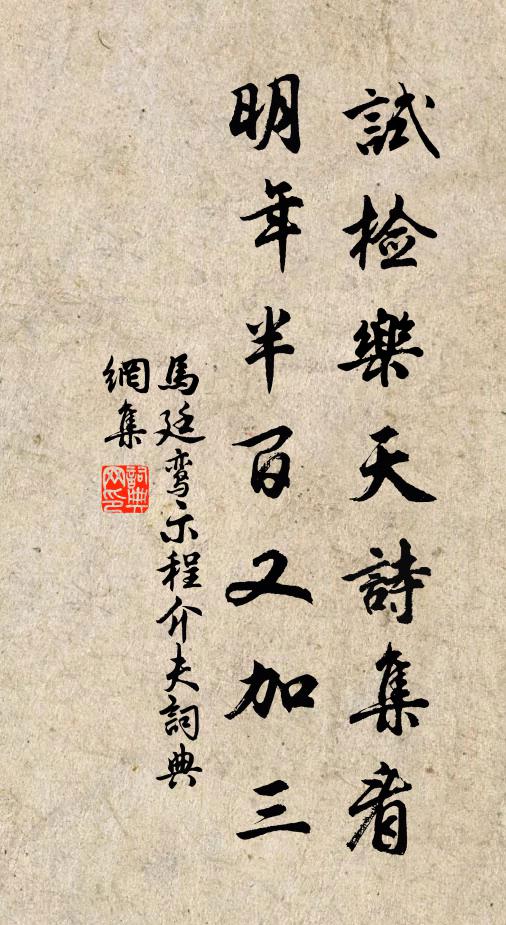 試檢樂天詩集看
明年半百又加三
馬廷鸞示程介夫詞典
網集
詞典網印